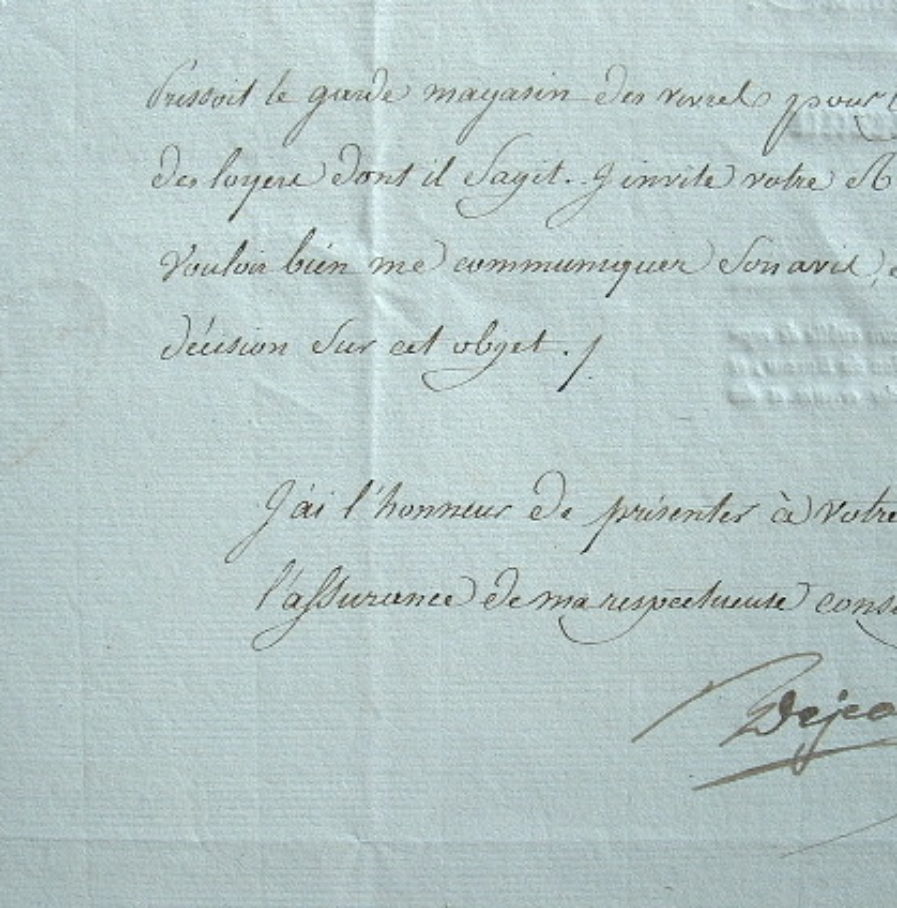 Pressoit le garde magasin des vivres pour
des loyers dont il s'agit. J'invite votre
Vouloir bien me communiquer Son avis,
décision Sur cet objet ./.
J'ai l'honneur De présenter à Votre
l'assurance De ma respectueuse
Dejea